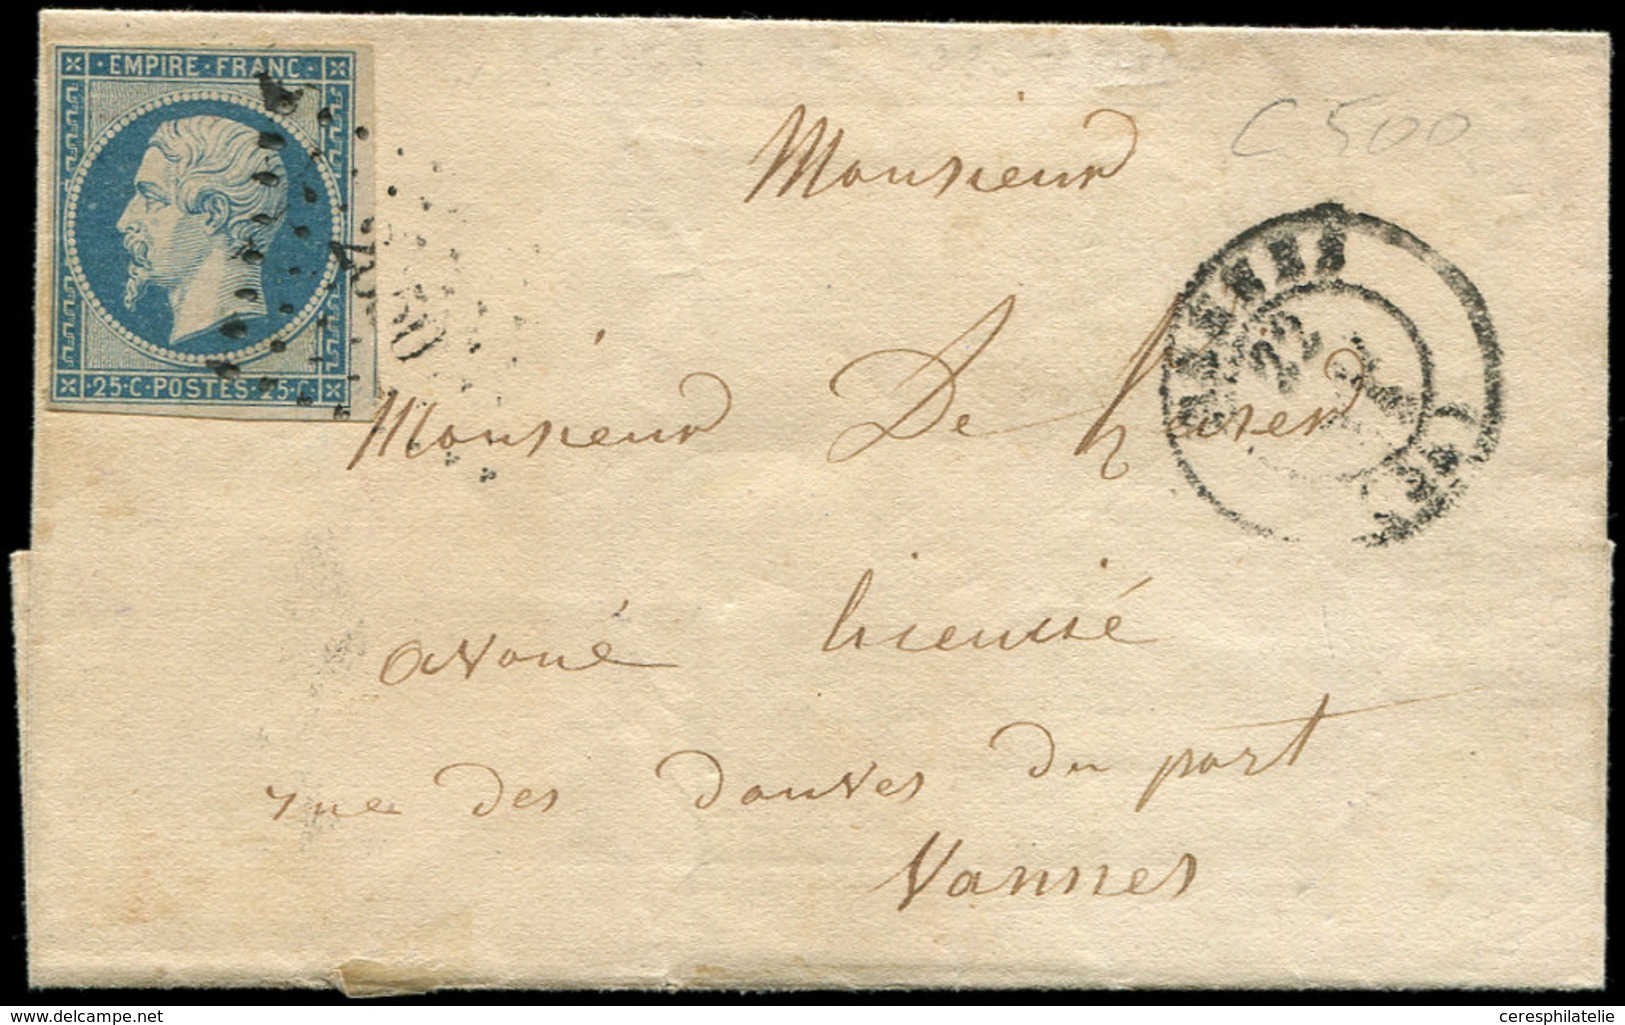 · EMPIRE · FRANC ·
· 25 · C · POSTES · 25 · C ·
C 500
Monsieur
RENNES
22
Monsieur De
avoué licencié
rue des douves du port
Vannes
delcampe.net
ceresphilatelie